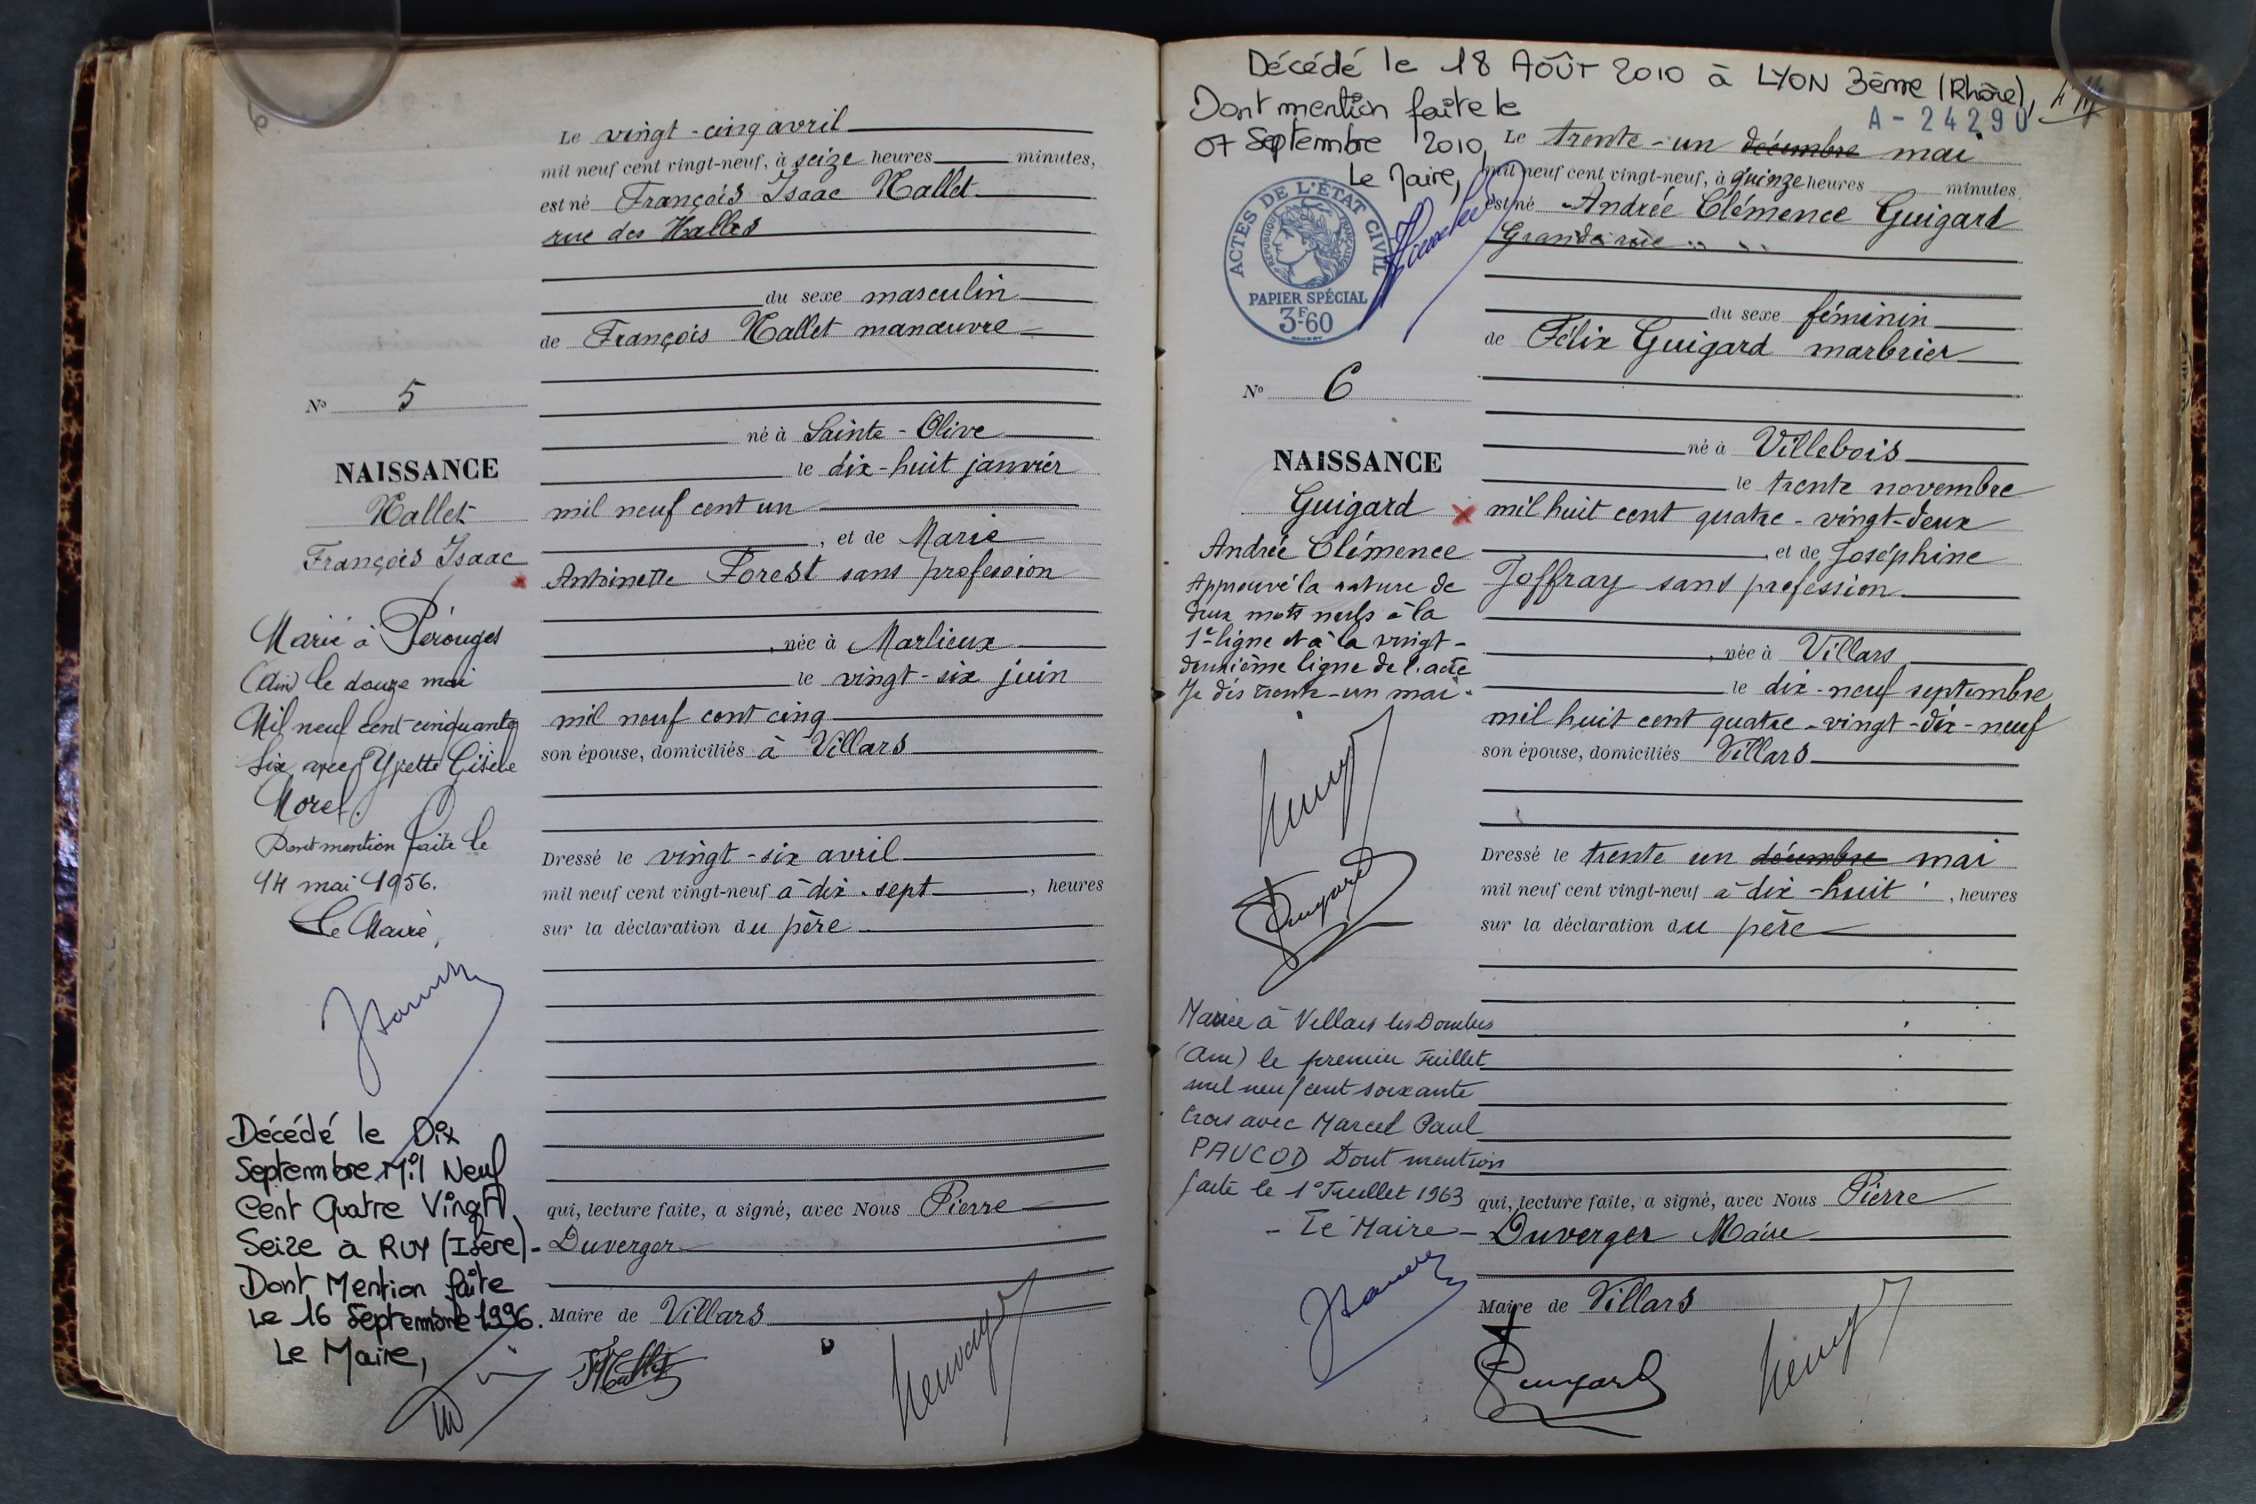 Le vingt-cinq avril
mil neuf cent vingt-neuf, à seize heures minutes,
est né François Isaac Nallet
rue des Halles
du sexe masculin
de François Nallet manœuvre
né à Sainte-Olive
le dix-huit janvier
mil neuf cent un
, et de Marie
Antoinette Forest sans profession
, née à Marlieux
le vingt-six juin
mil neuf cent cinq
son épouse, domiciliés à Villars
Dressé le vingt-six avril
mil neuf cent vingt-neuf à dix-sept , heures
sur la déclaration du père
qui, lecture faite, a signé, avec Nous Pierre
Duverger
Maire de Villars
No 5
NAISSANCE
Nallet
François Isaac
Marié à Pérouges
(Ain) le douze mai
Mil neuf cent cinquante
six avec Yvette Gisèle
Morel.
Dont mention faite le
14 mai 1956.
Le Maire,
Décédé le Dix
Septembre Mil Neuf
Cent Quatre Vingt
Seize à RUY (Isère)-
Dont Mention faite
Le 16 Septembre 1996.
Le Maire,
Décédé le 18 AOÛT 2010 à LYON 3ème (Rhône),
Dont mention faite le
07 Septembre 2010
Le Maire,
A-24290
ACTES DE L'ÉTAT CIVIL
RÉPUBLIQUE FRANÇAISE
PAPIER SPÉCIAL
3F60
No 6
NAISSANCE
Guigard
Andrée Clémence
Approuvé la rature de
deux mots nuls à la
1e ligne et à la vingt-
deuxième ligne de l'acte
Je dis trente-un mai.
Mariée à Villars les Dombes
(Ain) le premier Juillet
mil neuf cent soixante
trois avec Marcel Paul
PAUCOD Dont mention
faite le 1° Juillet 1963
- Le Maire -
Le trente-un décembre mai
mil neuf cent vingt-neuf, à quinze heures minutes
est né Andrée Clémence Guigard
Grande rue
du sexe féminin
de Félix Guigard marbrier
né à Villebois
le trente novembre
mil huit cent quatre-vingt-deux
, et de Joséphine
Joffray sans profession
, née à Villars
le dix-neuf septembre
mil huit cent quatre-vingt-dix-neuf
son épouse, domiciliés Villars
Dressé le trente un décembre mai
mil neuf cent vingt-neuf à dix-huit , heures
sur la déclaration du père
qui, lecture faite, a signé, avec Nous Pierre
Duverger Maire
Maire de Villars